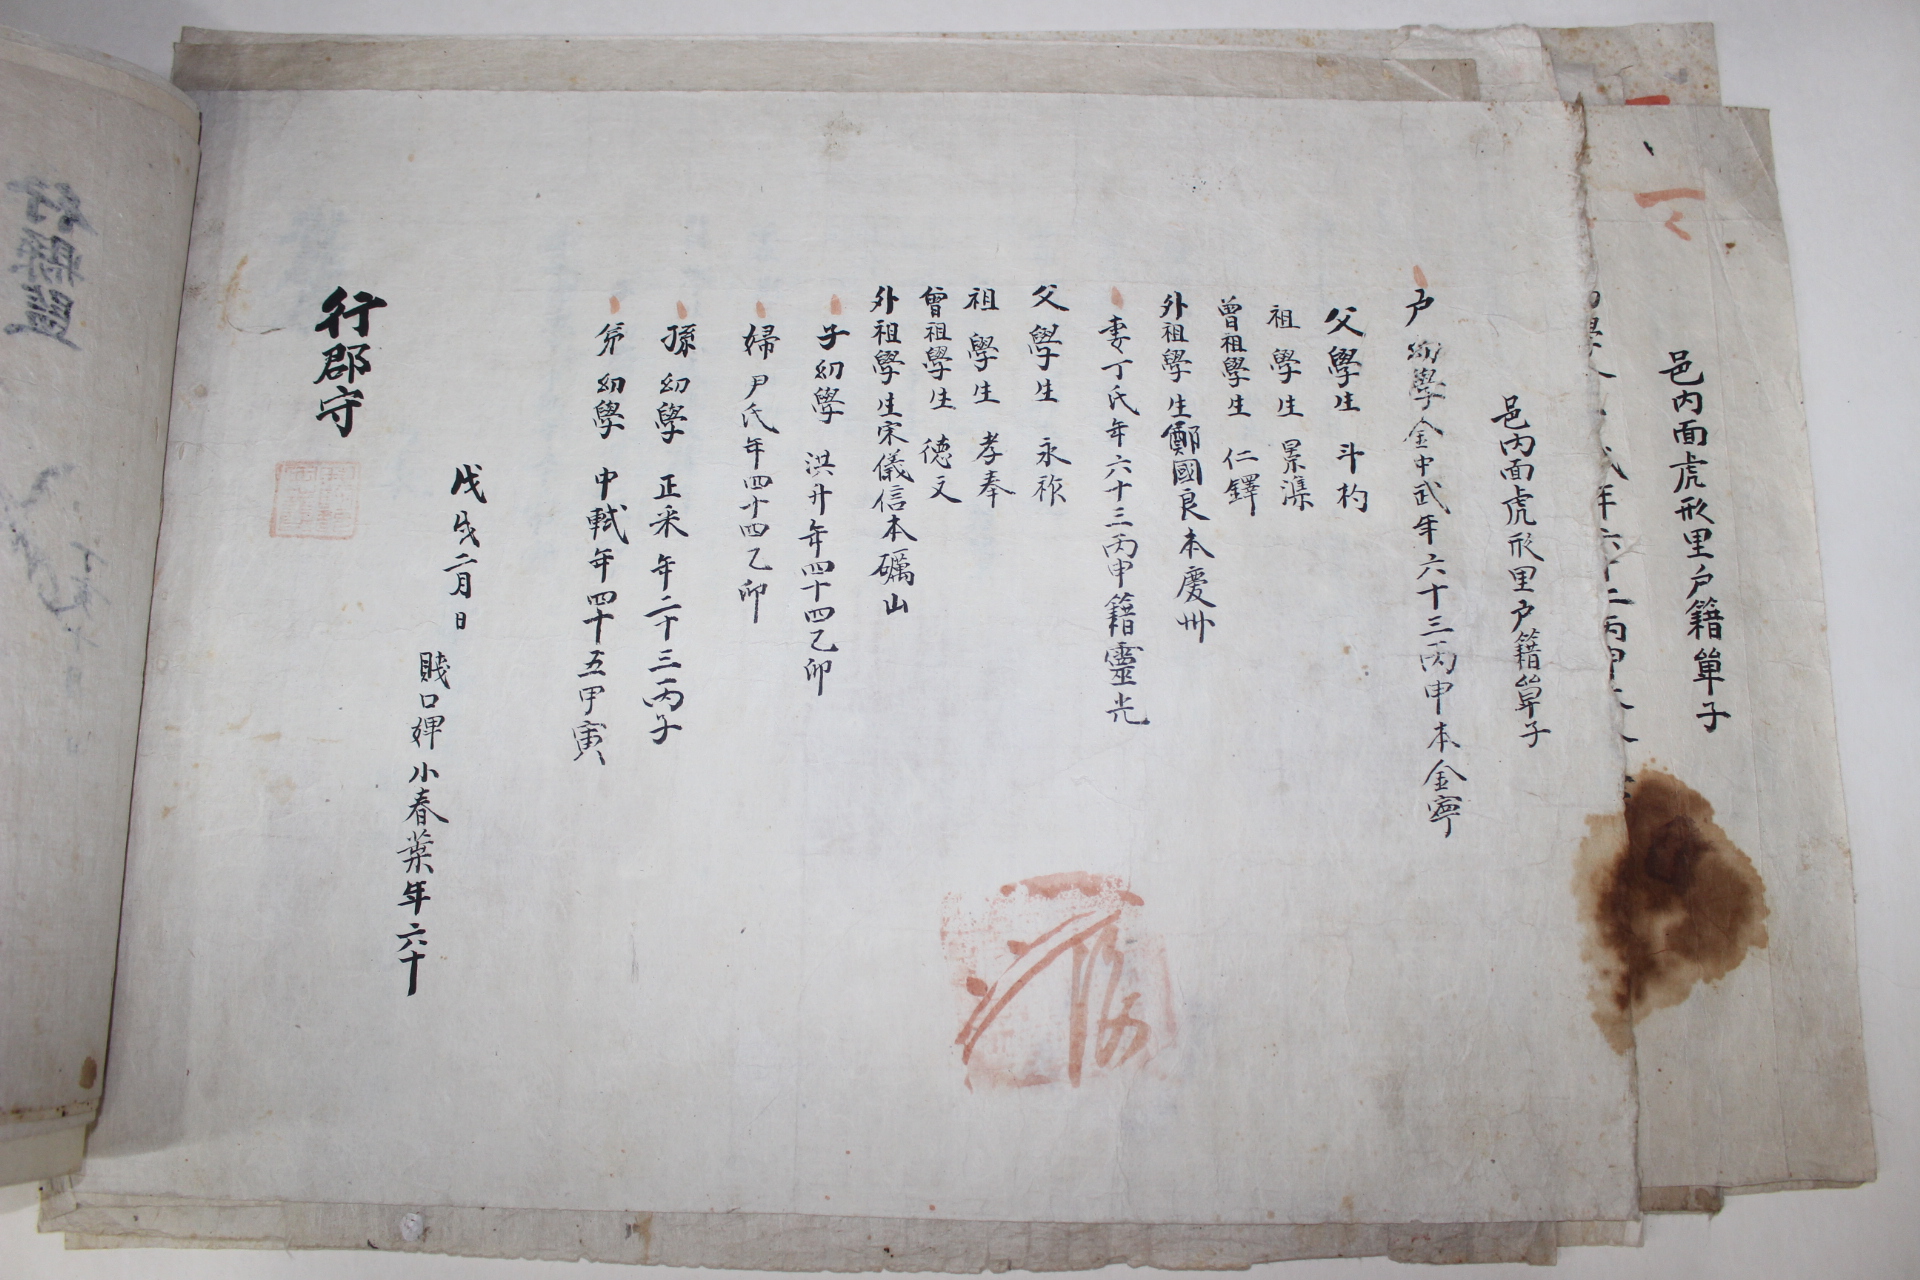 邑內面虎形里戶籍單子
邑內面虎形里戶籍單子
戶幼學金中武年六十三丙申本金寧
父學生斗杓
祖學生景
曾祖學生仁鐸
外祖學生鄭國良本慶州
妻丁氏年六十三丙申籍靈光
父學生永祚
祖學生孝奉
曾祖學生德文
外祖學生宋儀信本礪山
子幼學洪升年四十四乙卯
婦尹氏年四十四乙卯
孫幼學正采年二十三丙子
弟幼學中軾年四十五甲寅
賤口婢小春葉年六十
戊戌二月日
行郡守
行縣監